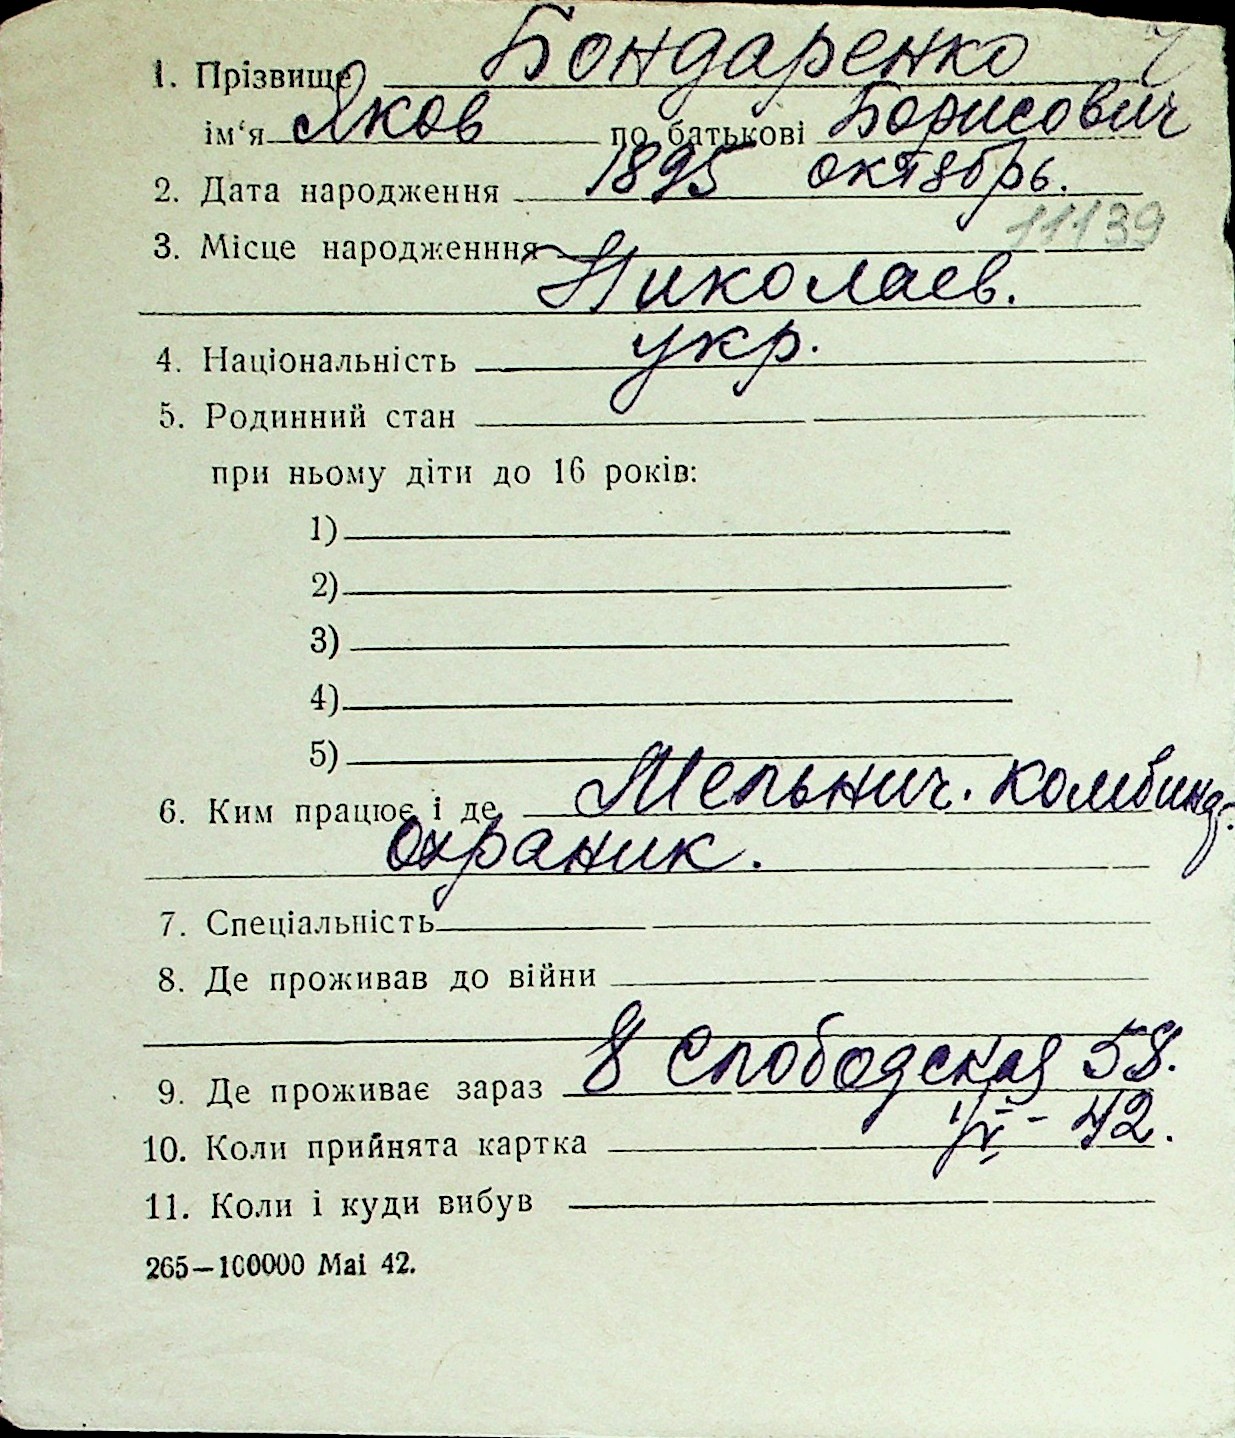 1. Прізвище Бондаренко
ім‘я Яков по батькові Борисович
2. Дата народження 1895 октябрь.
11139
3. Місце народженння
Николаев.
4. Національність укр.
5. Родинний стан
при ньому діти до 16 років:
1)
2)
3)
4)
5)
6. Ким працює і де Мельнич. комбинат.
Охраник.
7. Спеціальність
8. Де проживав до війни
9. Де проживає зараз 8 Слободская 58.
10. Коли прийнята картка 1/VI - 42.
11. Коли і куди вибув
265—100000 Mai 42.